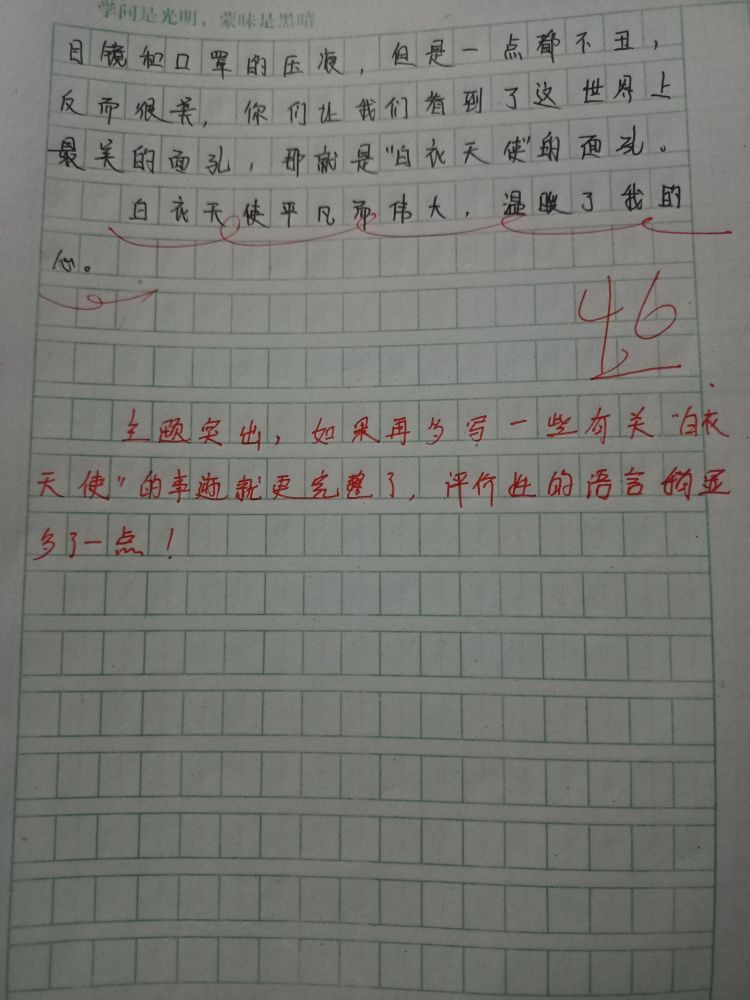 学问是光明，蒙昧是黑暗
目镜和口罩的压痕，但是一点都不丑，
反而很美，你们让我们看到了这世界上
最美的面孔，那就是“白衣天使”的面孔。
白衣天使平凡而伟大，温暖了我的
心。
46
主题突出，如果再多写一些有关“白衣
天使”的事迹就更完整了，评价性的语言稍显
多了一点！